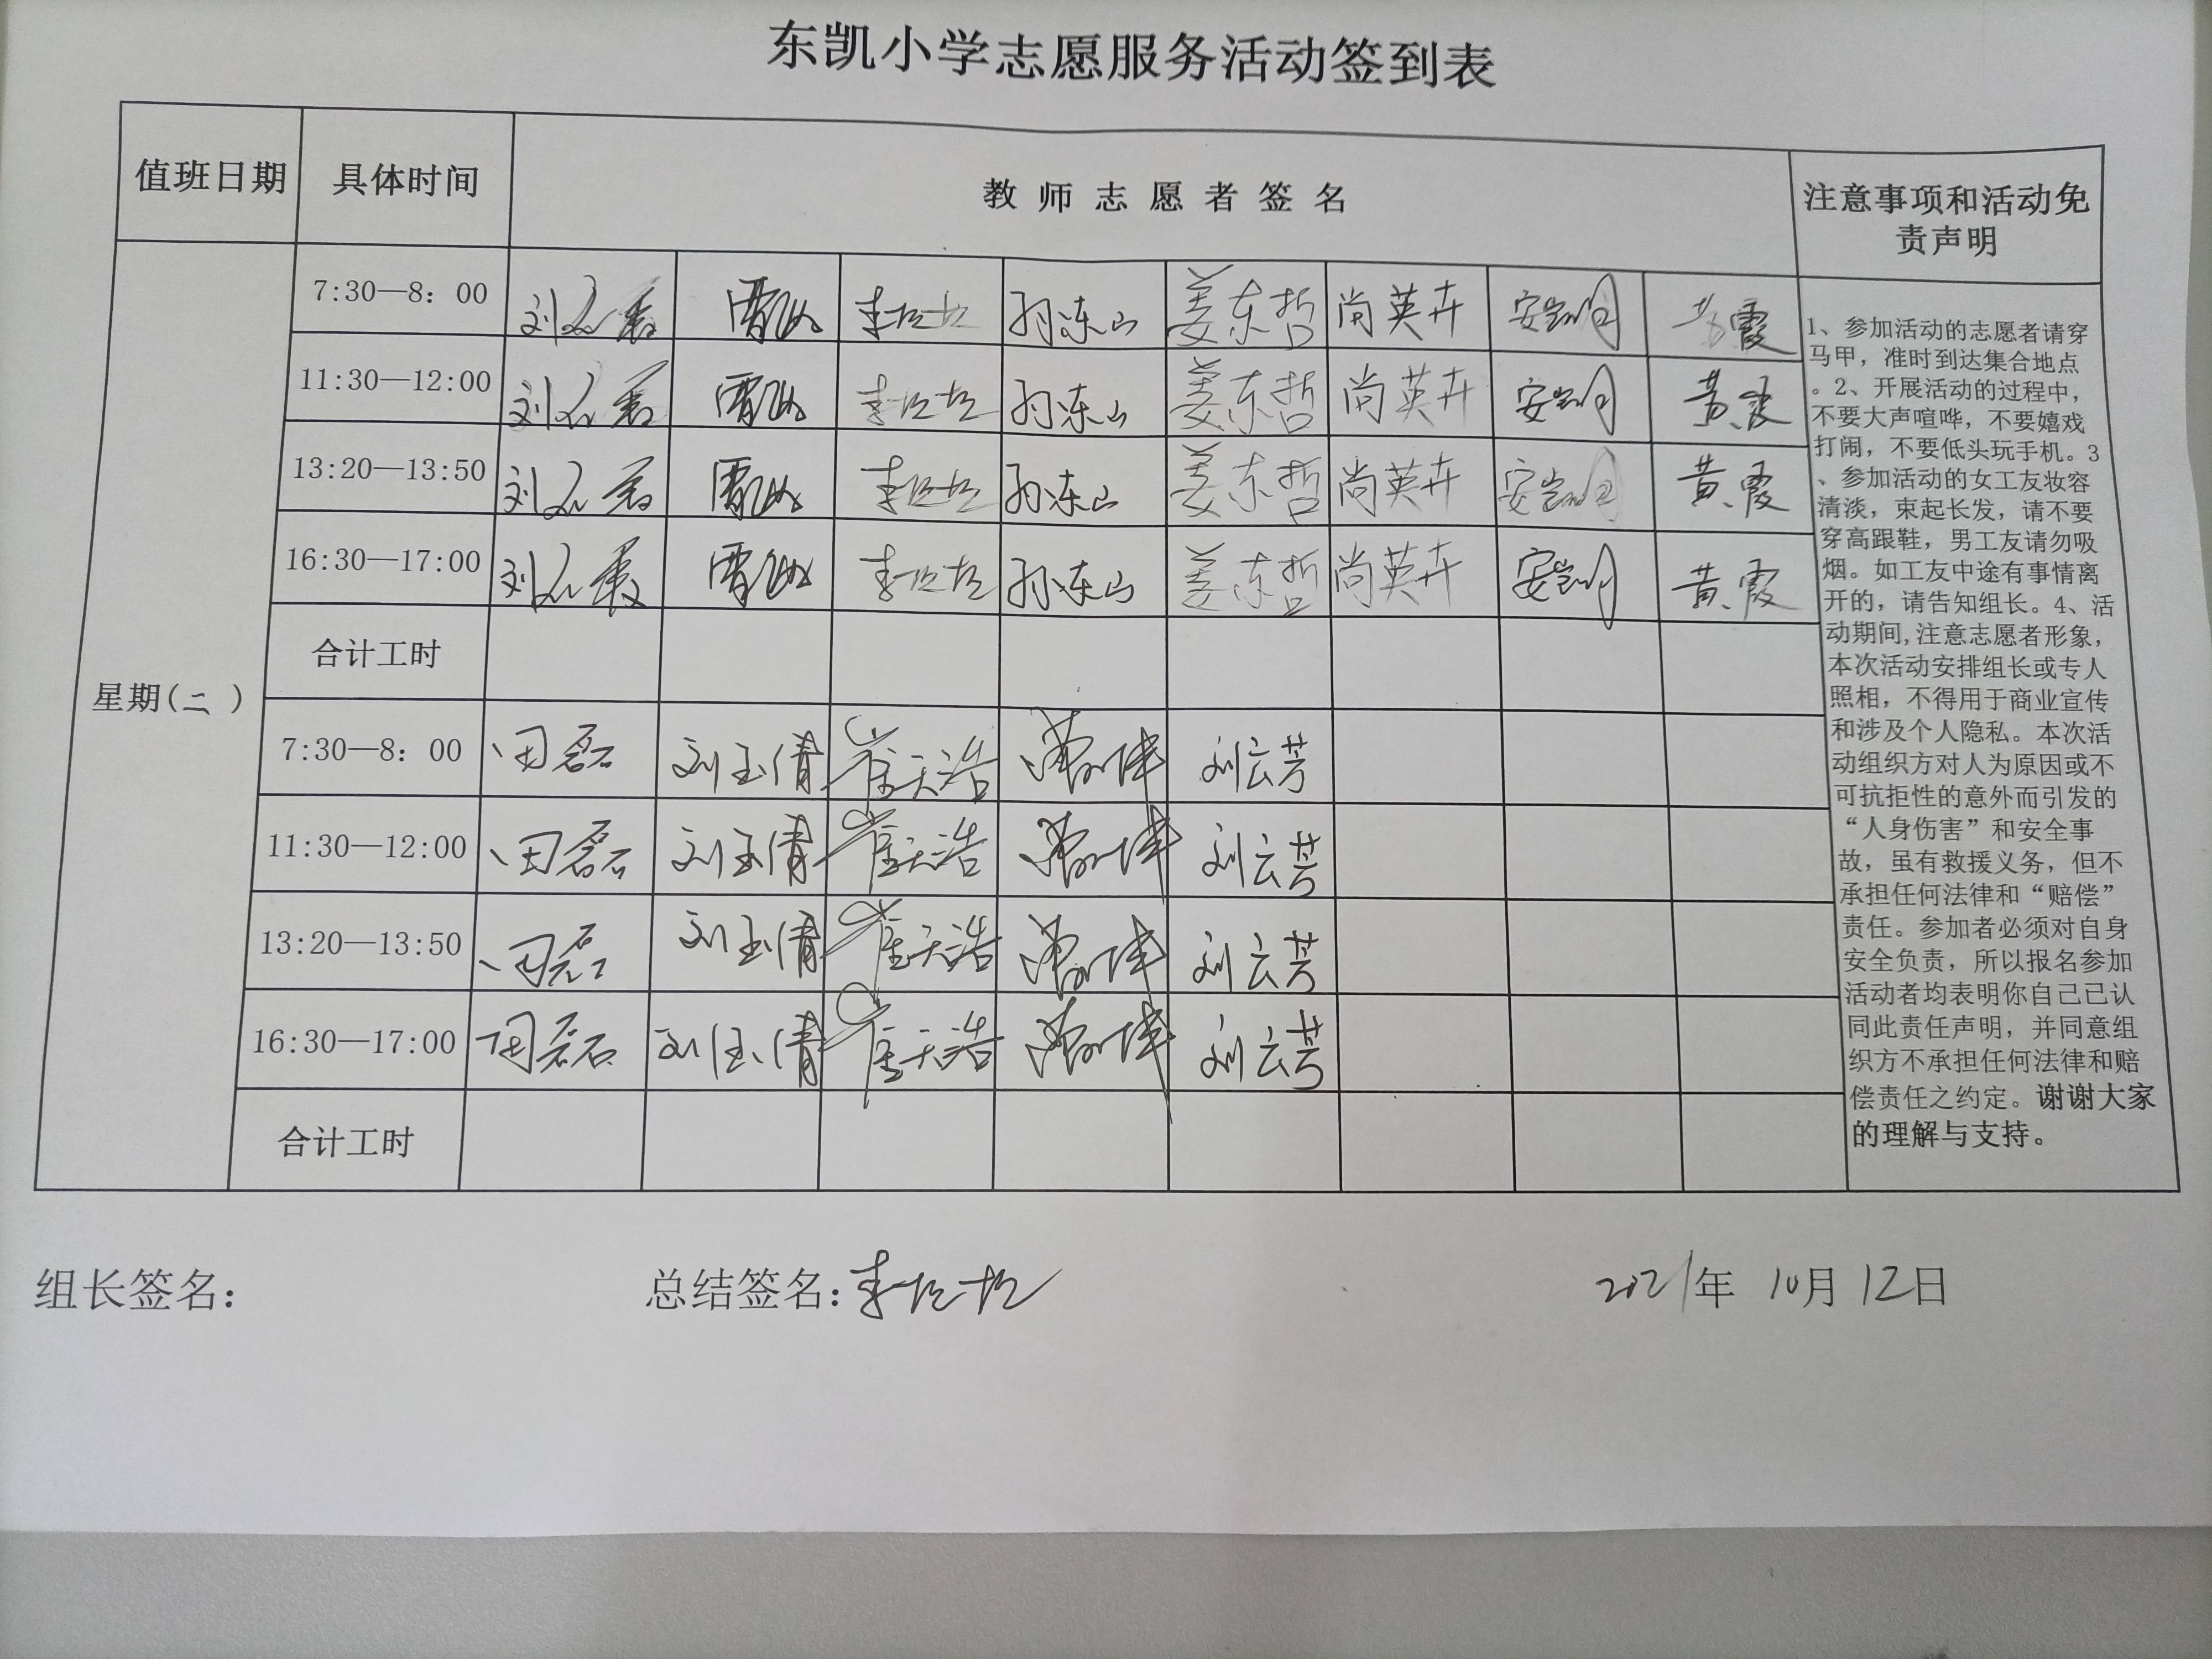 东凯小学志愿服务活动签到表
值班日期 具体时间 教师志愿者签名 注意事项和活动免
责声明
星期(二)
7:30—8：00 孙冻山 姜东哲 尚英卉 黄霞
11:30—12:00 孙冻山 姜东哲 尚英卉 黄霞
13:20—13:50 孙冻山 姜东哲 尚英卉 黄霞
16:30—17:00 孙冻山 姜东哲 尚英卉 黄霞
合计工时
7:30—8：00 田磊 刘玉倩 崔天浩 刘云芳
11:30—12:00 田磊 刘玉倩 崔天浩 刘云芳
13:20—13:50 田磊 刘玉倩 崔天浩 刘云芳
16:30—17:00 田磊 刘玉倩 崔天浩 刘云芳
合计工时
1、参加活动的志愿者请穿
马甲，准时到达集合地点
。2、开展活动的过程中，
不要大声喧哗，不要嬉戏
打闹，不要低头玩手机。3
、参加活动的女工友妆容
清淡，束起长发，请不要
穿高跟鞋，男工友请勿吸
烟。如工友中途有事情离
开的，请告知组长。4、活
动期间,注意志愿者形象，
本次活动安排组长或专人
照相，不得用于商业宣传
和涉及个人隐私。本次活
动组织方对人为原因或不
可抗拒性的意外而引发的
“人身伤害”和安全事
故，虽有救援义务，但不
承担任何法律和“赔偿”
责任。参加者必须对自身
安全负责，所以报名参加
活动者均表明你自己已认
同此责任声明，并同意组
织方不承担任何法律和赔
偿责任之约定。谢谢大家
的理解与支持。
组长签名： 总结签名： 2021年 10月 12日